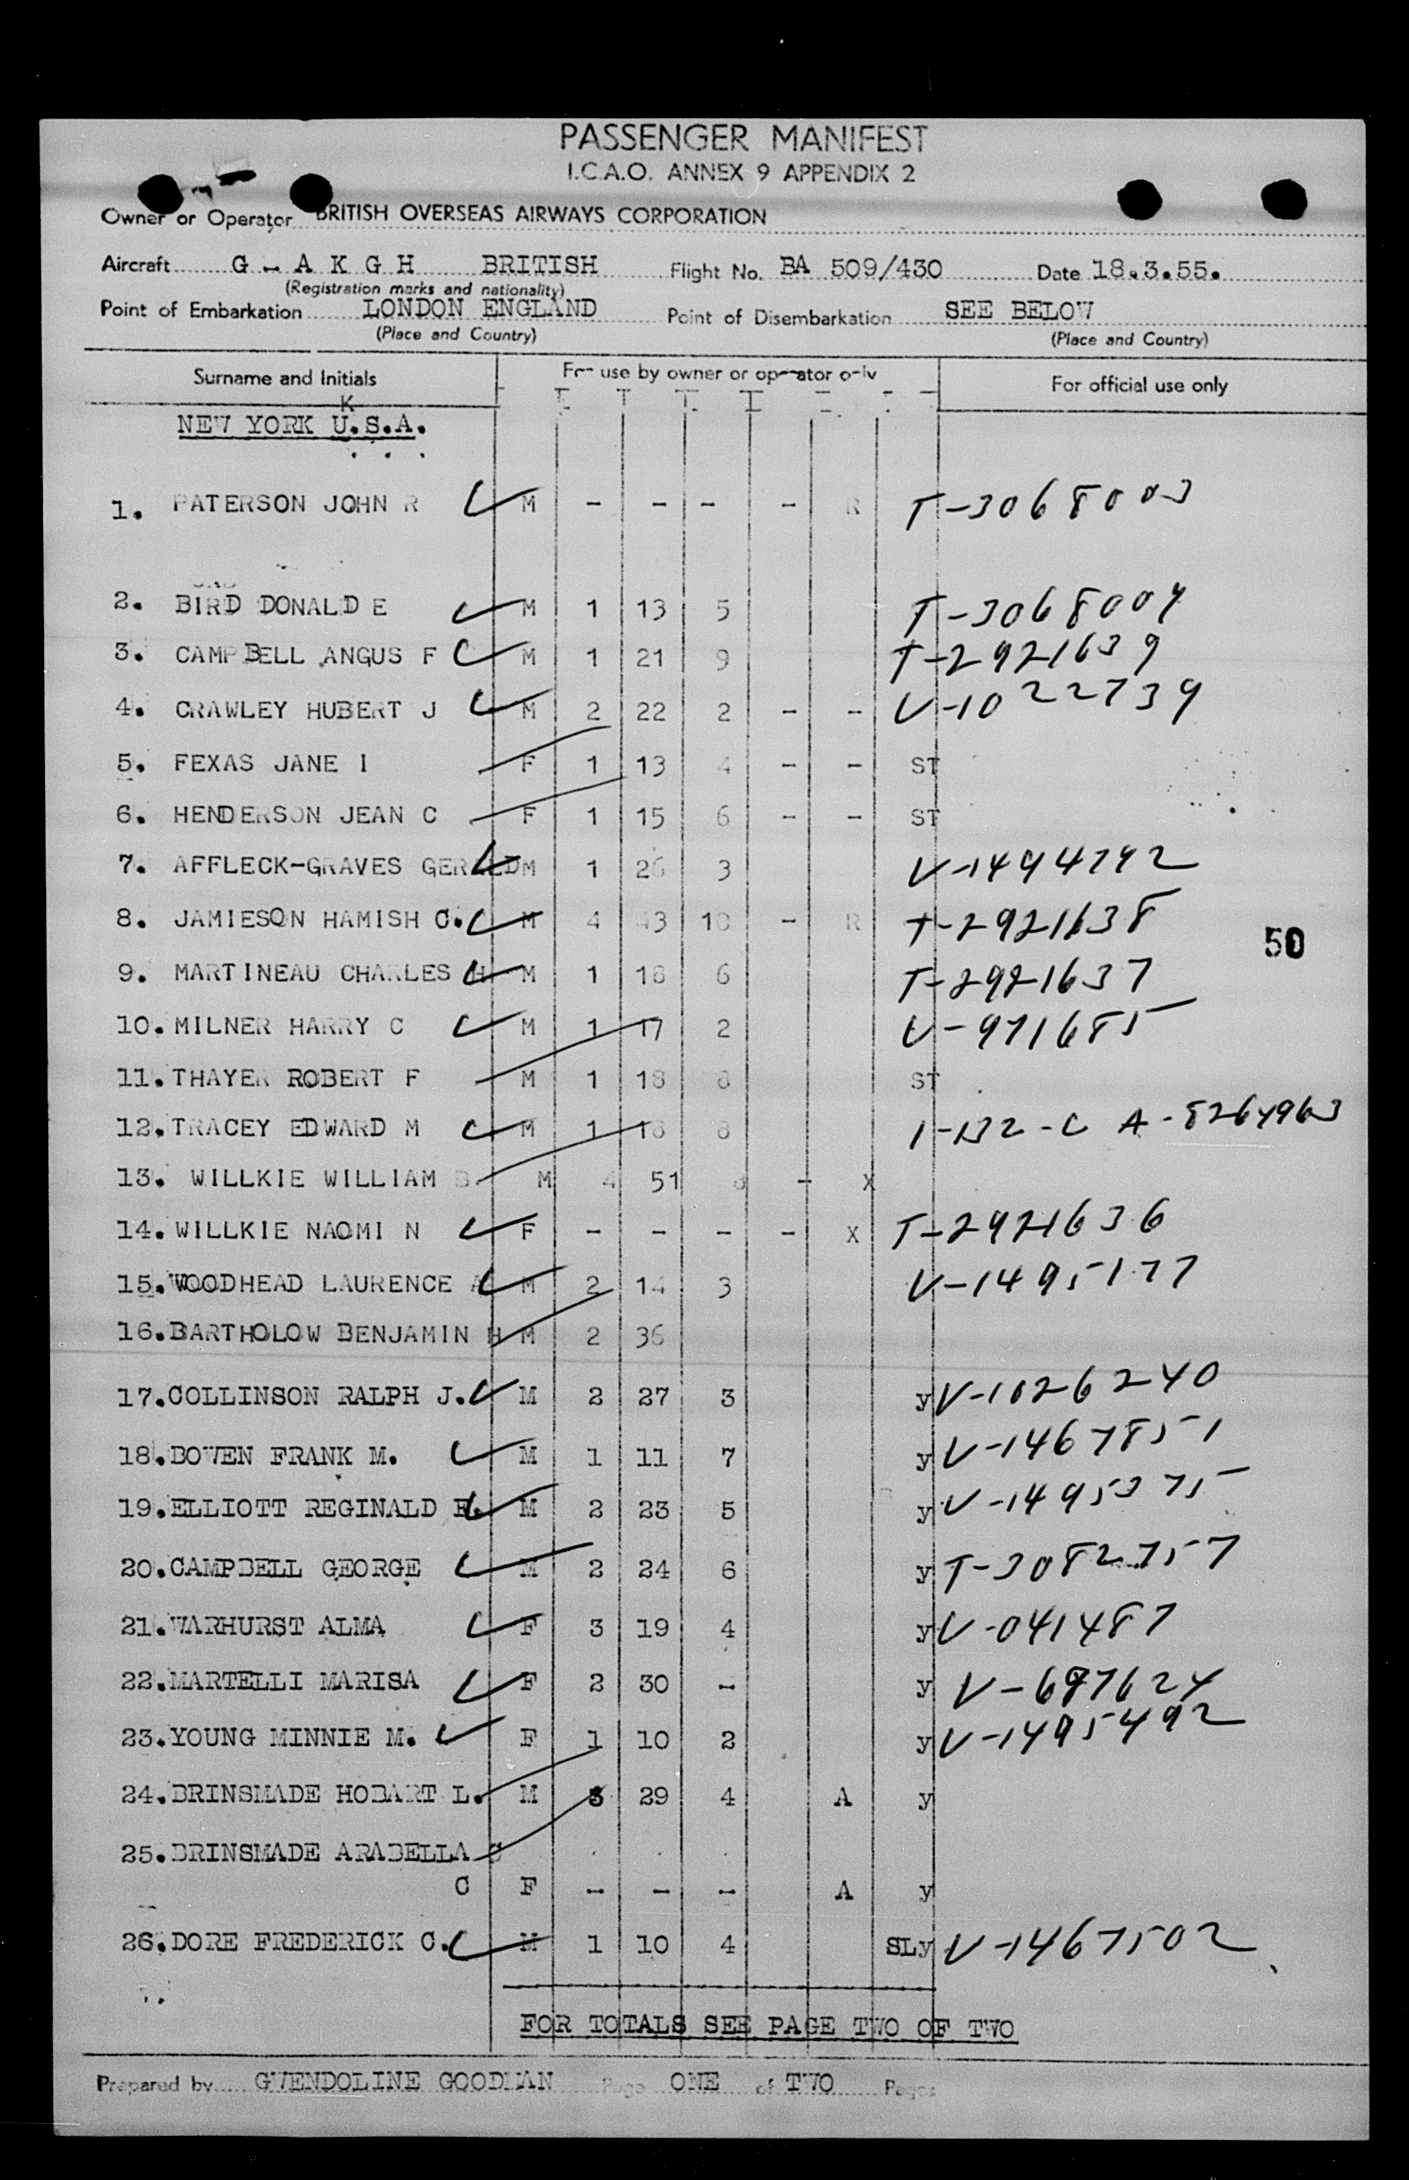 PASSENGER MANIFEST
I.C.A.O. ANNEX 9 APPENDIX 2
Owner or Operator BRITISH OVERSEAS AIRWAYS CORPORATION
Aircraft G - A K G H BRITISH Flight No. BA 509/430 Date 18.3.55.
(Registration marks and nationality)
Point of Embarkation LONDON ENGLAND Point of Disembarkation SEE BELOW
(Place and Country) (Place and Country)
Surname and Initials For use by owner or operator only For official use only
K
NEW YORK U.S.A.
1. PATERSON JOHN R M - - - - R T-3068003
2. BIRD DONALD E M 1 13 5 T-3068004
3. CAMPBELL ANGUS F M 1 21 9 T-2921639
4. CRAWLEY HUBERT J M 2 22 2 - - V-1022739
5. FEXAS JANE I F 1 13 4 - - ST
6. HENDERSON JEAN C F 1 15 6 - - ST
7. AFFLECK-GRAVES M 1 26 3 V-1494792
8. JAMIESON HAMISH C. M 4 43 10 - R T-2921638
50
9. MARTINEAU CHARLES H M 1 18 6 T-2921637
10. MILNER HARRY C M 1 17 2 V-971685
11. THAYER ROBERT F M 1 18 8 ST
12. TRACEY EDWARD M M 1 18 8 I-132-C A-8264963
13. WILLKIE WILLIAM B M 4 51 - X
14. WILLKIE NAOMI N F - - - - X T-2921636
15. WOODHEAD LAURENCE A M 2 14 3 V-1495177
16. BARTHOLOW BENJAMIN H M 2 36
17. COLLINSON RALPH J. M 2 27 3 y V-1026240
18. BOWEN FRANK M. M 1 11 7 y V-1467851
19. ELLIOTT REGINALD M 2 23 5 y V-1495375
20. CAMPBELL GEORGE M 2 24 6 y T-3082757
21. WARHURST ALMA F 3 19 4 y V-041487
22. MARTELLI MARISA F 2 30 - y V-687624
23. YOUNG MINNIE M. F 1 10 2 y V-1495492
24. BRINSMADE HOBART L. M 3 29 4 A y
25. BRINSMADE ARABELLA C
C F - - - A y
26. DORE FREDERICK C. M 1 10 4 SLy V-1467502
FOR TOTALS SEE PAGE TWO OF TWO
Prepared by GWENDOLINE GOODMAN Page ONE of TWO Pages